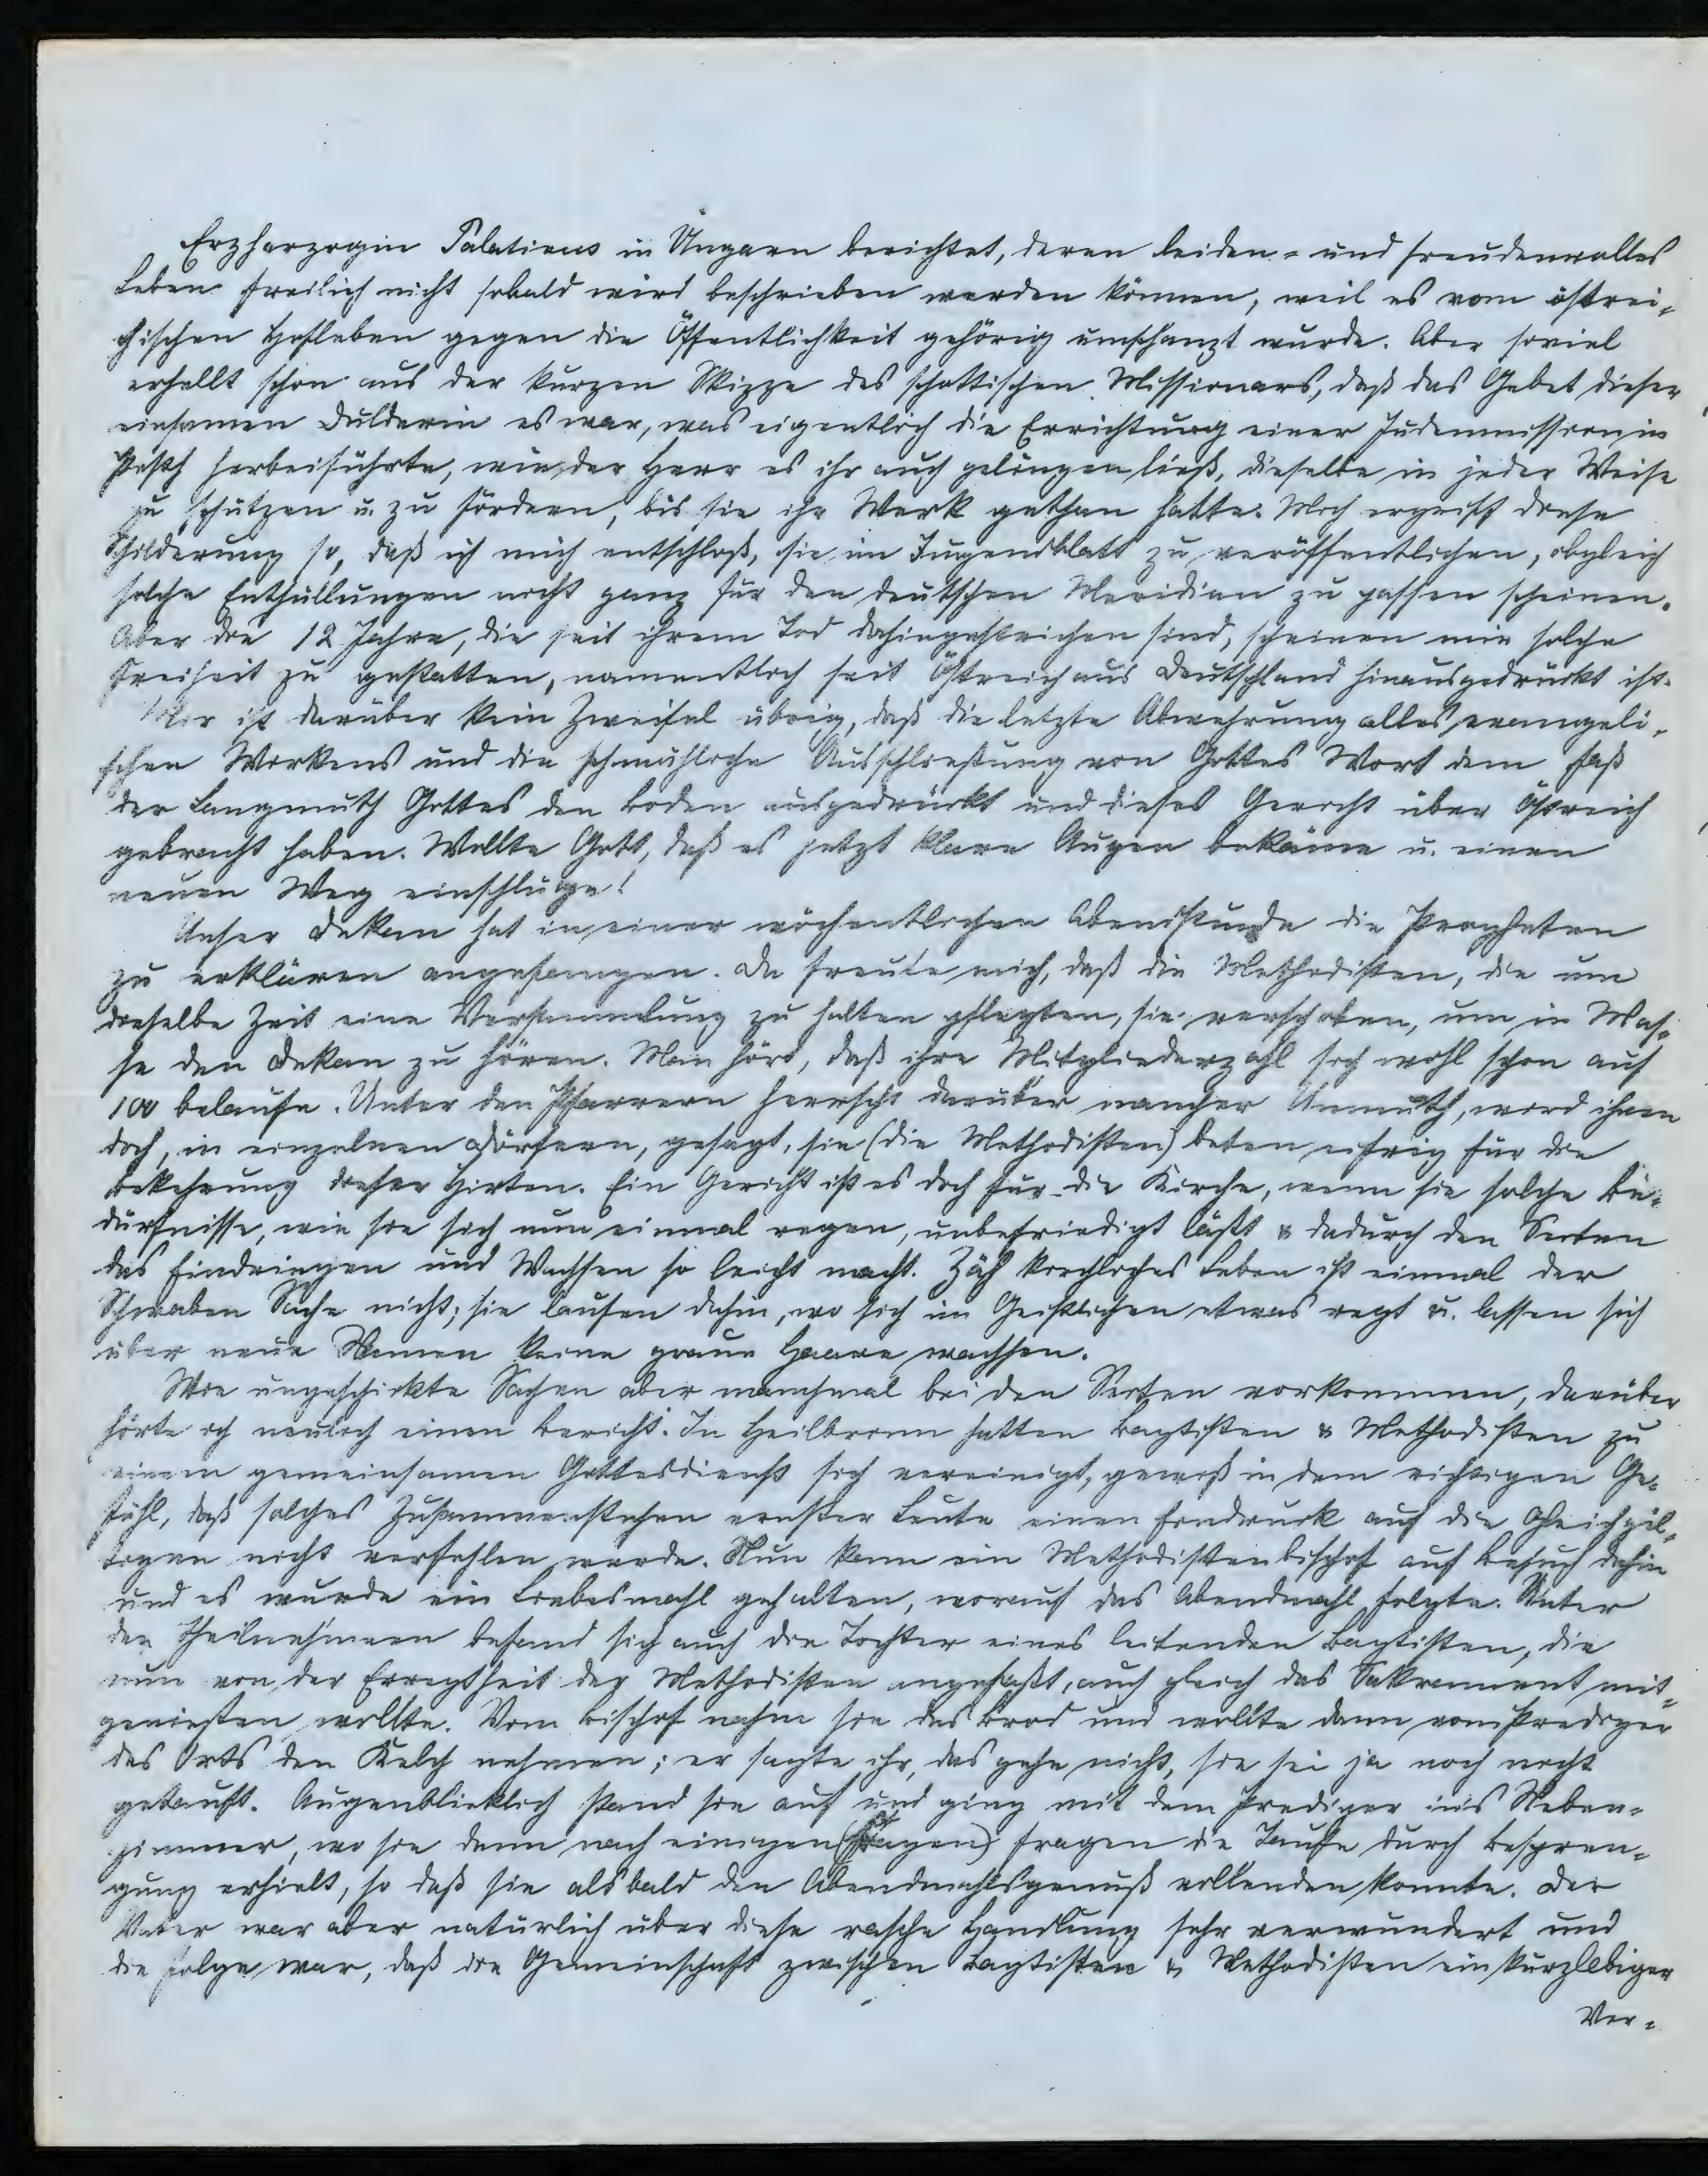 Erzherzogin Palatinus in Ungarn berichtet, deren leiden- und freudenvolles
Leben freilich nicht sobald wird beschrieben werden können, weil es vom östrei-
chischen Hofleben gegen die Öffentlichkeit gehörig umschanzt wurde. Aber soviel
erhellt schon aus der kurzen Skizze des schottischen Missionars, daß das Gebet dieser
einsamen Dulderin es war, was eigentlich die Errichtung einer Judenmission in
Pesth herbeiführte, wie der Herr es ihr auch gelingen ließ, dieselbe in jeder Weise
zu schützen u. zu fördern, bis sie ihr Werk gethan hatte. Mich ergriff diese
Schilderung so, daß ich mich entschloß, sie im Jugendblatt zu veröffentlichen, obgleich
solche Enthüllungen nicht ganz für den deutschen Meridian zu passen scheinen.
Aber die 12 Jahre, die seit ihrem Tod dahingestrichen sind, scheinen mir solche
Freiheit zu gestatten, namentlich seit Östreich aus Deutschland hinausgedrückt ist.
Mir ist darüber kein Zweifel übrig, daß die letzte Abwehrung alles evangeli-
schen Wirkens und die schmähliche Ausschließung von Gottes Wort dem Faß
der Langmuth Gottes den Boden ausgedrückt und dieses Gericht über Östreich
gebracht haben. Wollte Gott, daß es jetzt klare Augen bekäme u. einen
neuen Weg einschlüge!
Unser Dekan hat in einer wöchentlichen Abendstunde die Propheten
zu erklären angefangen. Da freute mich, daß die Methodisten, die um
dieselbe Zeit eine Versammlung zu halten pflegten, sie verschoben, um in Mas-
se den Dekan zu hören. Man hört, daß ihre Mitgliederzahl sich wohl schon auf
100 belaufe. Unter den Pfarrern herrscht darüber mancher Unmuth, wird ihnen
doch, in einzelnen Dörfern, gesagt, sie (die Methodisten) beten eifrig für die
Bekehrung dieser Hirten. Ein Gericht ist es doch für die Kirche, wenn sie solche Be-
dürfnisse, wie sie sich nun einmal regen, unbefriedigt läßt & dadurch den Secten
das Eindringen und Wachsen so leicht macht. Zäh kirchliches Leben ist einmal der
Schwaben Sache nicht; sie laufen dahin, wo sich im Geistlichen etwas regt u. lassen sich
über neue Namen keine graue Haare wachsen.
Wie ungeschickte Sachen aber manchmal bei den Secten vorkommen, darüber
hörte ich neulich einen Bericht. In Heilbronn hatten Baptisten & Methodisten zu
einem gemeinsamen Gottesdienst sich vereinigt, gewiß in dem richtigen Ge-
fühl, daß solches Zusammenstehen ernster Leute einen Eindruck auf die Gleichgül-
tigen nicht verfehlen werde. Nun kam ein Methodistenbischof auf Besuch dahin
und es wurde ein Liebesmahl gehalten, worauf das Abendmahl folgte. Unter
den Theilnehmern befand sich auch die Tochter eines leitenden Baptisten, die
nun von der Erregtheit der Methodisten angefaßt, auch gleich das Sakrament mit-
genießen wollte. Vom Bischof nahm sie das Brod und wollte dann vom Prediger
des Orts den Kelch nehmen; er sagte ihr, das gehe nicht, sie sei ja noch nicht
getauft. Augenblicklich stand sie auf und ging mit dem Prediger in's Neben-
zimmer, wo sie dann nach einigen (Fragen) Fragen die Taufe durch Bespren-
gung erhielt, so daß sie alsbald den Abendmahlsgenuß vollenden konnte. Der
Vater war aber natürlich über diese rasche Handlung sehr verwundert und
die Folge war, daß die Gemeinschaft zwischen Baptisten & Methodisten ein kurzlebiger
Ver-